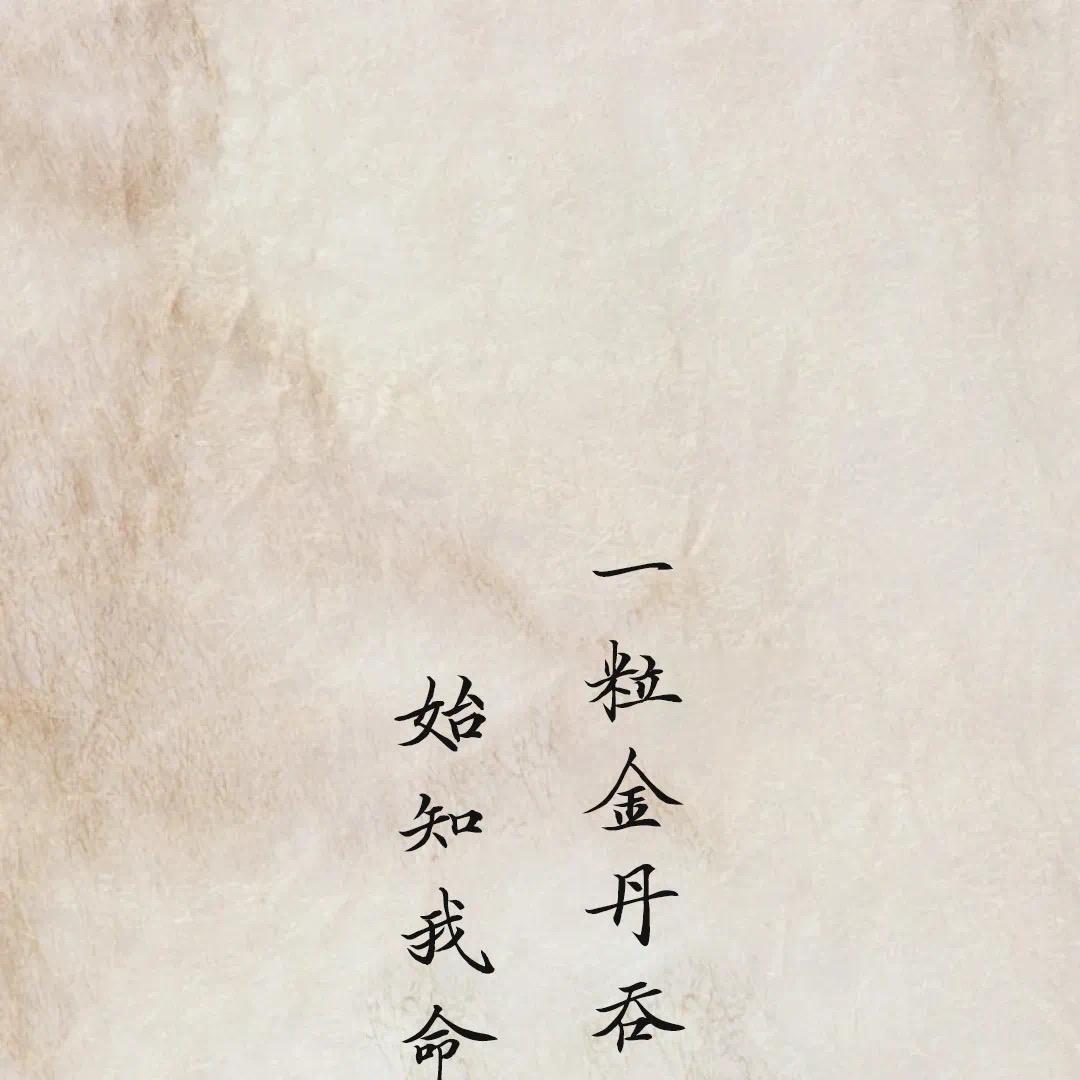 一粒金丹吞
始知我命